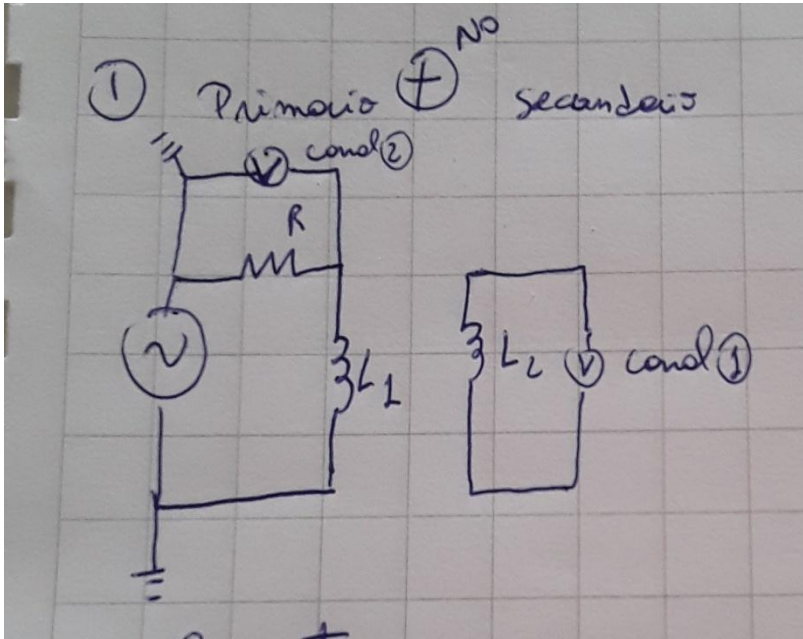 NO
① Primario + secundario
canal ②
R
~
L1
L2 V canal ①